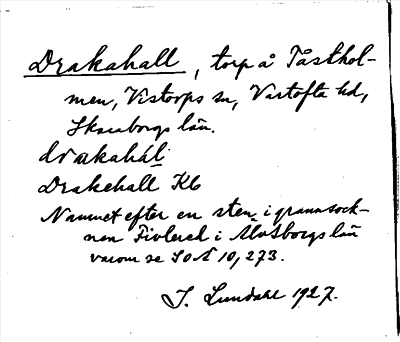 Drakahall, torp å Tåsthol-
men, Vistorps sn, Vartofta hd,
Skaraborgs län.
drakahál
Drakehall Kb
Namnet efter en sten i grannsock-
nen Fivlered i Älvsborgs län
varom se SOÄ 10,273.
J. Lundahl 1927.